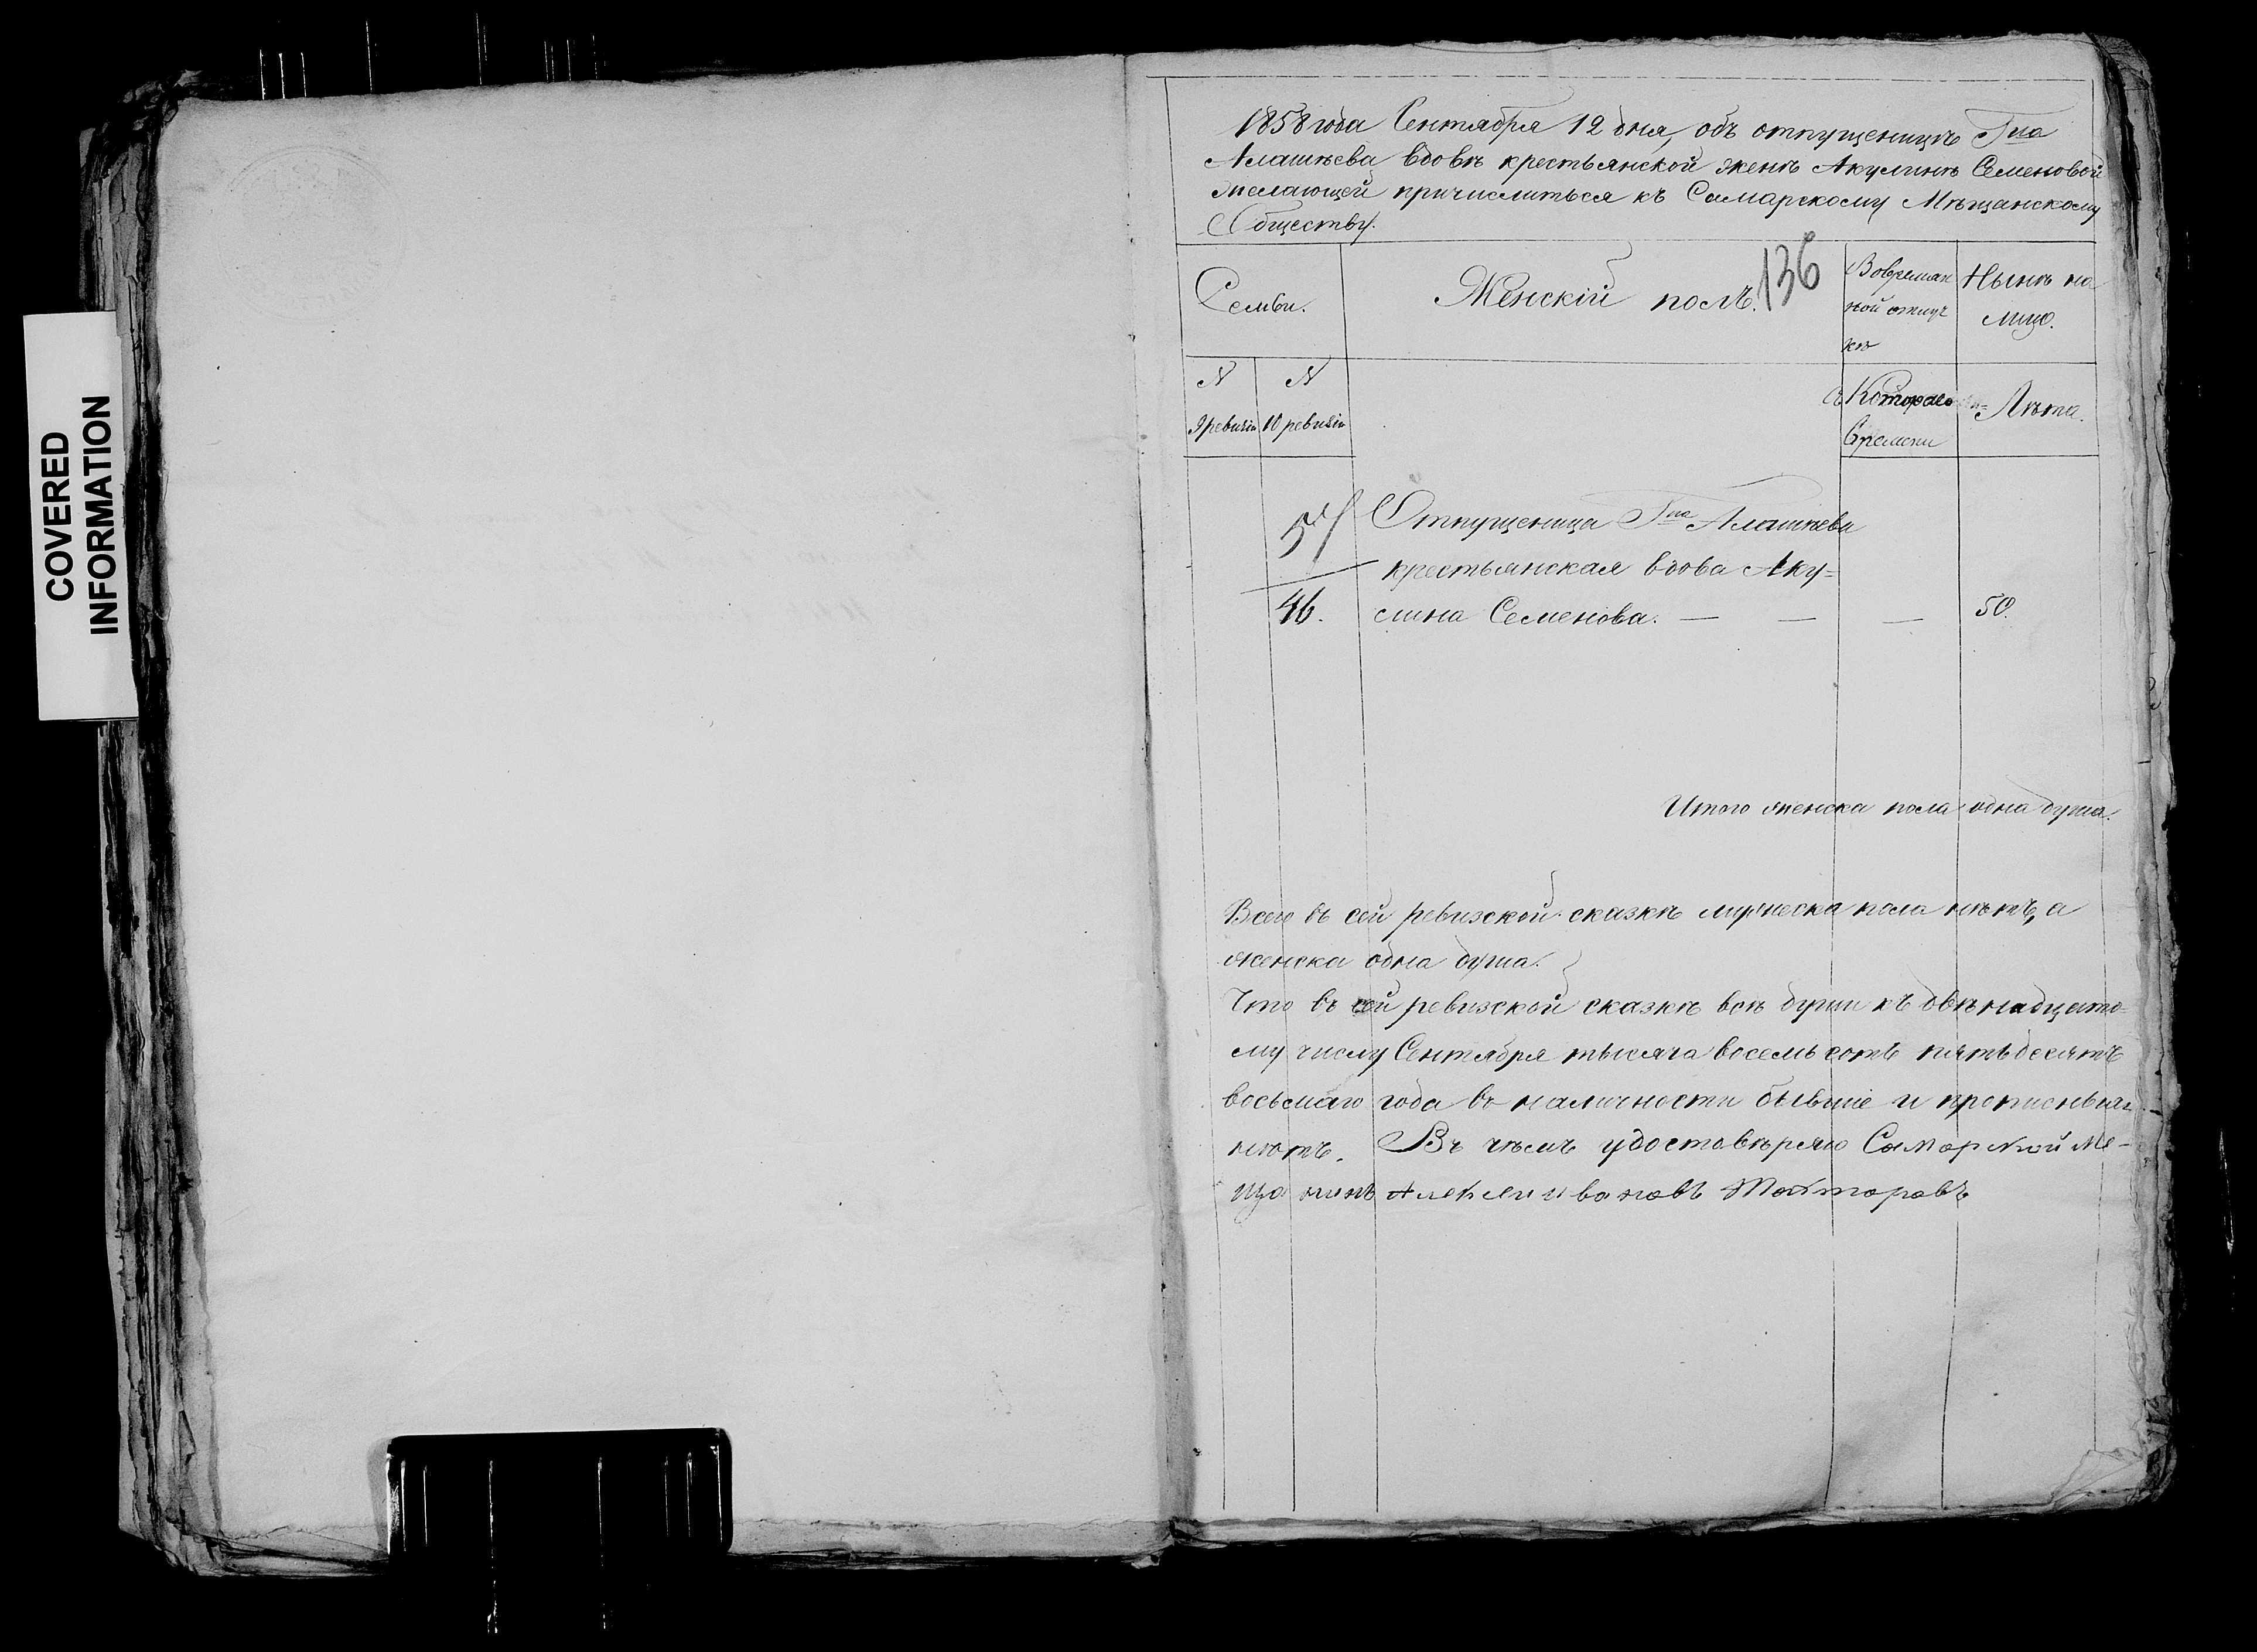 COVERED
INFORMATION
1858 года Сентября 12 дня, объ отпущеницѣ Гна
Алашѣева вдовѣ крестьянской женѣ Акулинѣ Семеновой
желающей причислиться къ Самарскому Мѣщанскому
Обществу.
136
Семьи. Женскій полъ. Вовремян Нынѣ на
ной отлуч лицо.
кѣ
N N
9 ревизіи 10 ревизіи съ Котораго Лѣта.
Времени
Отпущеница Гна Алашѣева
крестьянская вдова Аку=
46. лина Семенова. — — — 50.
Итого женска пола одна душа.
Всего въ сей ревизской сказкѣ мужеска пола нѣтъ, а
женска одна душа.
Что въ сей ревизской сказкѣ всѣ души къ двѣнадцато-
му числу Сентября тысяча восемь сотъ пятьдесятъ
восьмаго года въ наличности бывшіе и прописныхъ
нѣтъ. Въ чѣмъ удоставѣряю Самарской ме-
щанинъ Алексеи Ивановъ